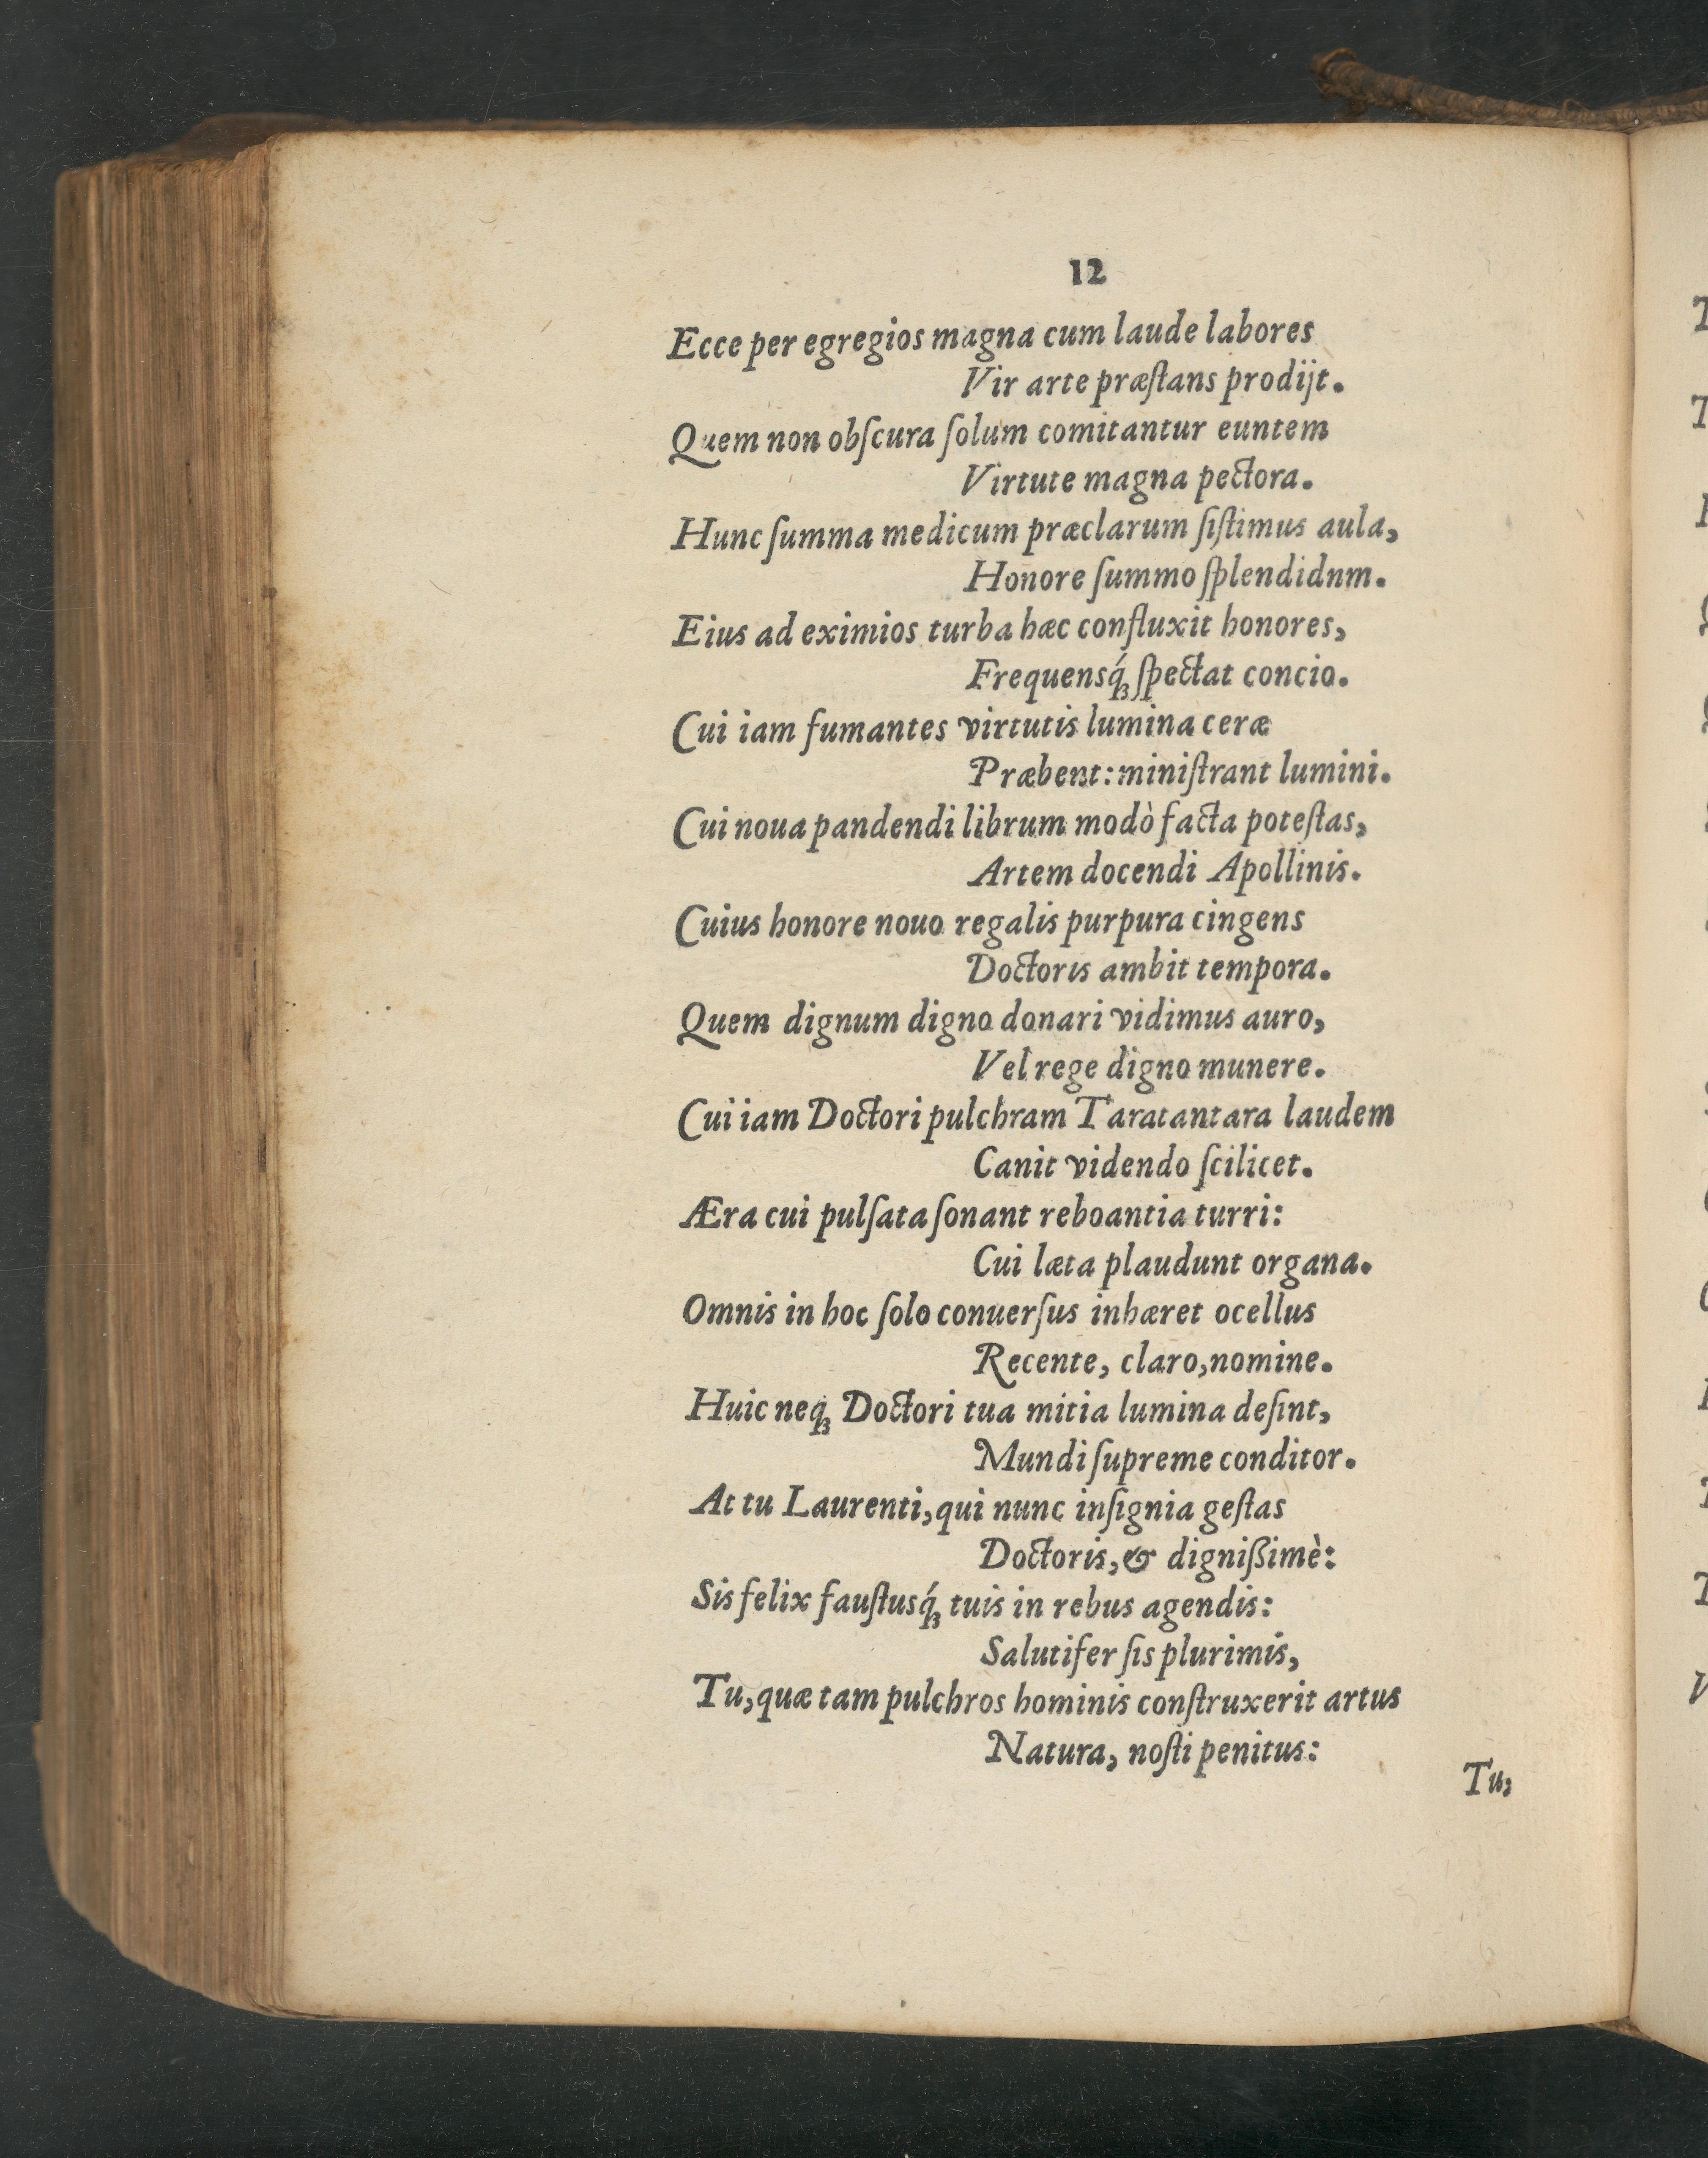 12
Ecce per egregios magna cum laude labores
Vir arte præſtans prodijt.
Quem non obſcura ſolum comitantur euntem
Virtute magna pectora.
Hunc ſumma medicum præclarum ſiſtimus aula,
Honore ſummo ſplendidnm.
Eius ad eximios turba hæc confluxit honores,
Frequensq́ꝫ ſpectat concio.
Cui iam fumantes virtutis lumina ceræ
Præbent: miniſtrant lumini.
Cui noua pandendi librum modò facta poteſtas,
Artem docendi Apollinis.
Cuius honore nouo regalis purpura cingens
Doctoris ambit tempora.
Quem dignum digno donari vidimus auro,
Vel rege digno munere.
Cui iam Doctori pulchram Taratantara laudem
Canit videndo ſcilicet.
Æra cui pulſata ſonant reboantia turri:
Cui læta plaudunt organa.
Omnis in hoc ſolo conuerſus inhæret ocellus
Recente, claro, nomine.
Huic neqꝫ Doctori tua mitia lumina deſint,
Mundi ſupreme conditor.
At tu Laurenti, qui nunc inſignia geſtas
Doctoris, & dignißimè:
Sis felix fauſtusq́ꝫ tuis in rebus agendis:
Salutifer ſis plurimis,
Tu, quæ tam pulchros hominis conſtruxerit artus
Natura, noſti penitus:
Tu,